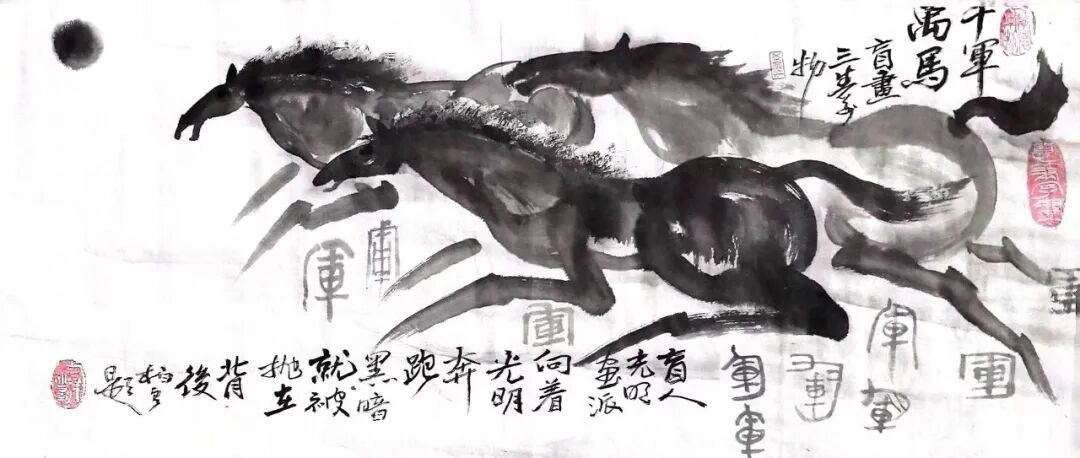 千軍
萬馬
盲畫
三
物
盲人
光明
畫派
向着
光明
奔
跑
黑暗
就被
拋在
背
後
題
軍
軍
軍
軍
軍
軍
軍
軍
軍
軍